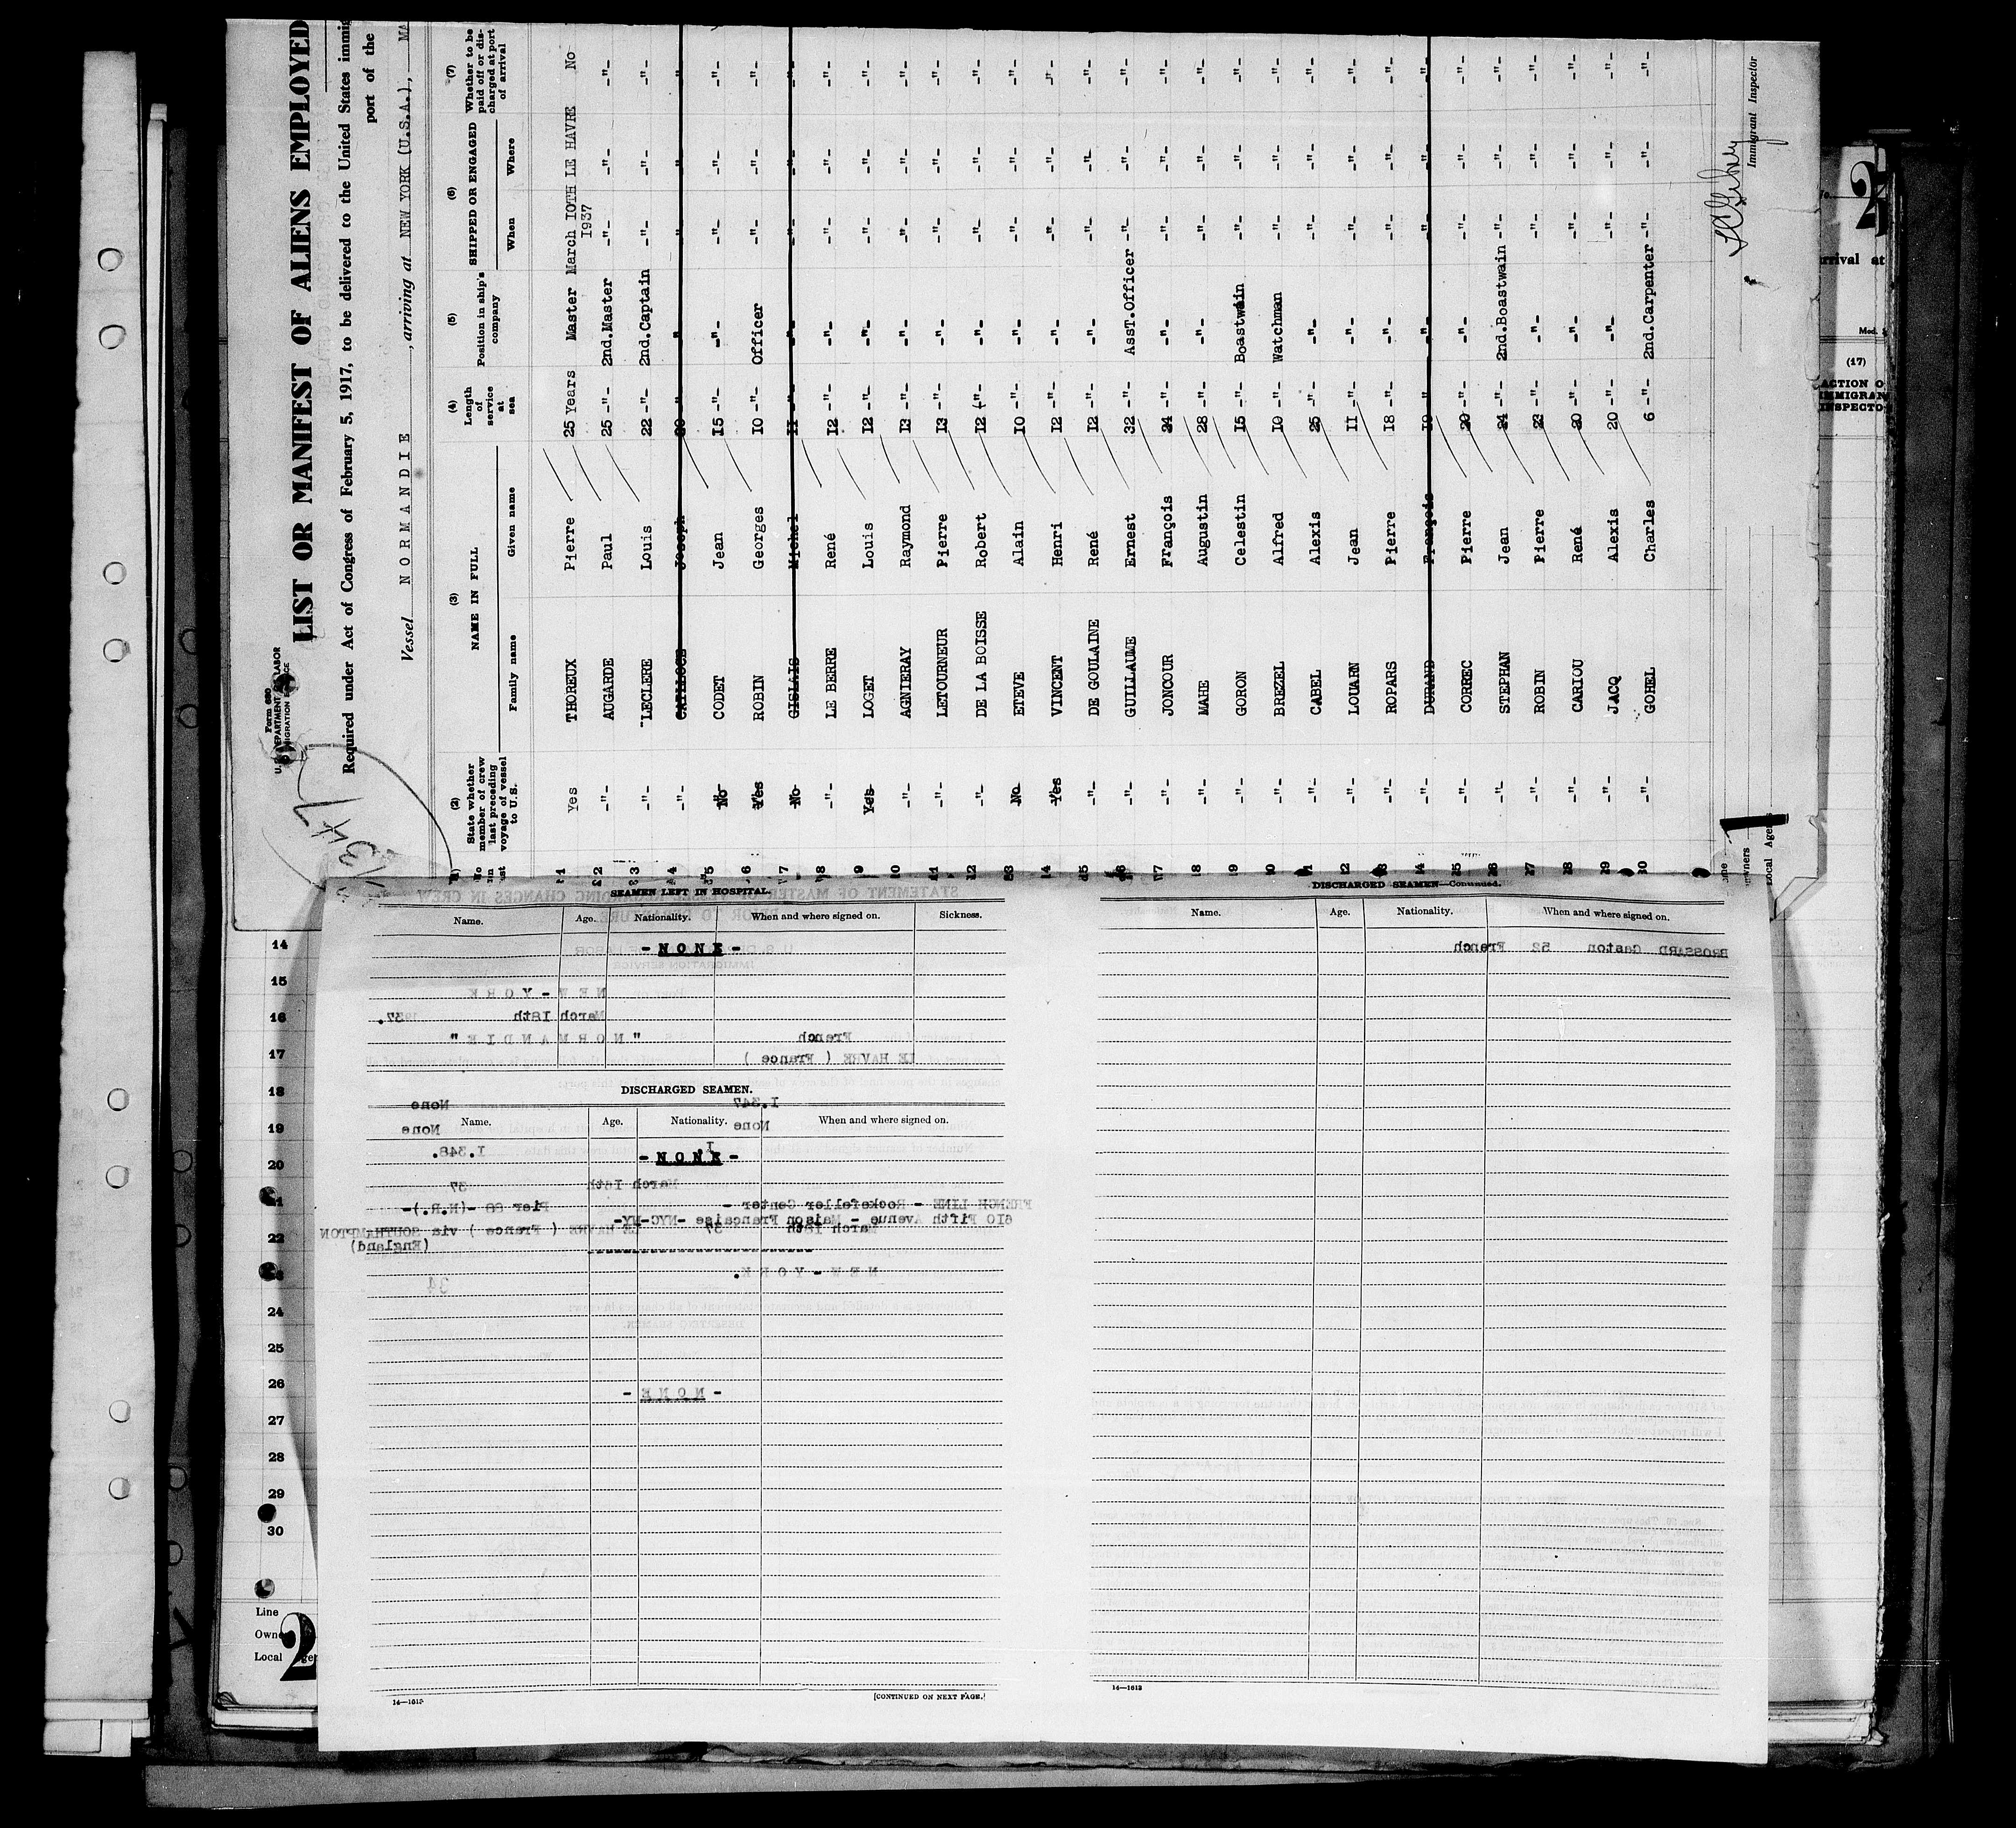 Form 680
U.S. DEPARTMENT OF LABOR
IMMIGRATION SERVICE
LIST OR MANIFEST OF ALIENS EMPLOYED
Required under Act of Congress of February 5, 1917, to be delivered to the United States immig
port of the
Vessel NORMANDIE, arriving at NEW YORK (U.S.A.), MA
(2) State whether member of crew last preceding voyage of vessel to U.S.
(3) NAME IN FULL
Family name Given name
(4) Length of service at sea
(5) Position in ship's company
(6) SHIPPED OR ENGAGED
When Where
(7) Whether to be paid off or discharged at port of arrival
1 Yes THOREUX Pierre 25 Years Master March IOTH LE HAVRE No
1937
2 -"- AUGARDE Paul 25 -"- 2nd.Master -"- -"- -"-
3 -"- LECLERE Louis 22 -"- 2nd.Captain -"- -"- -"-
4 -"- CATILOCE Joseph 20 " " " " "
5 No CODET Jean I5 -"- -"- -"- -"- -"-
6 Yes ROBIN Georges IO -"- Officer -"- -"- -"-
7 No GISLAIS Michel II -"- -"- -"- -"- -"-
8 -"- LE BERRE René I2 -"- -"- -"- -"- -"-
9 Yes LOGET Louis I2 -"- -"- -"- -"- -"-
10 -"- AGNIERAY Raymond I3 -"- -"- -"- -"- -"-
11 -"- LETOURNEUR Pierre I3 -"- -"- -"- -"- -"-
12 -"- DE LA BOISSE Robert I2 -"- -"- -"- -"- -"-
13 No ETEVE Alain IO -"- -"- -"- -"- -"-
14 Yes VINCENT Henri I2 -"- -"- -"- -"- -"-
15 -"- DE GOULAINE René I2 -"- -"- -"- -"- -"-
16 -"- GUILLAUME Ernest 32 -"- AssT.Officer -"- -"- -"-
17 -"- JONCOUR François 24 -"- -"- -"- -"- -"-
18 -"- MAHE Augustin 28 -"- -"- -"- -"- -"-
19 -"- GORON Celestin I5 -"- Boastwain -"- -"- -"-
20 -"- BREZEL Alfred IO -"- Watchman -"- -"- -"-
21 -"- CABEL Alexis 25 -"- -"- -"- -"- -"-
22 -"- LOUARN Jean II -"- -"- -"- -"- -"-
23 -"- ROPARS Pierre I8 -"- -"- -"- -"- -"-
24 -"- DURAND François I9 " -"- -"- -"- -"-
25 -"- CORREC Pierre 20 -"- -"- -"- -"- -"-
26 -"- STEPHAN Jean 24 -"- 2nd.Boastwain -"- -"- -"-
27 -"- ROBIN Pierre 22 -"- -"- -"- -"- -"-
28 -"- CARIOU René 20 -"- -"- -"- -"- -"-
29 -"- JACQ Alexis 20 -"- -"- -"- -"- -"-
30 -"- GOHEL Charles 6 -"- 2nd.Carpenter -"- -"- -"-
Immigrant Inspector
Local Agents
1
2
arrival at
(17)
ACTION O
IMMIGRAN
INSPECTO
SEAMEN LEFT IN HOSPITAL.
Name. Age. Nationality. When and where signed on. Sickness.
- N O N E -
N E W - Y O R K
March I8th 1937.
" N O R M A N D I E " French
LE HAVRE ( France )
DISCHARGED SEAMEN.
I.347 None
Name. Age. Nationality. When and where signed on.
None None
I I.348.
- N O N E -
March I8th 37
FRENCH LINE - Rockefeller Center - Pier 88 -(N.R.)-
6IO Fifth Avenue - Maison Francaise -NYC-NY-
March I8th 37 LE HAVRE ( France ) via SOUTHAMPTON
(England)
N E W - Y O R K.
34
DESERTING SEAMEN.
- N O N E -
14—1613 [CONTINUED ON NEXT PAGE.]
DISCHARGED SEAMEN—Continued.
Name. Age. Nationality. When and where signed on.
BROSSARD Gaston 52 French
14—1613
14
15
16
17
18
19
20
21
22
23
24
25
26
27
28
29
30
Line
Owne
Local Agen
2